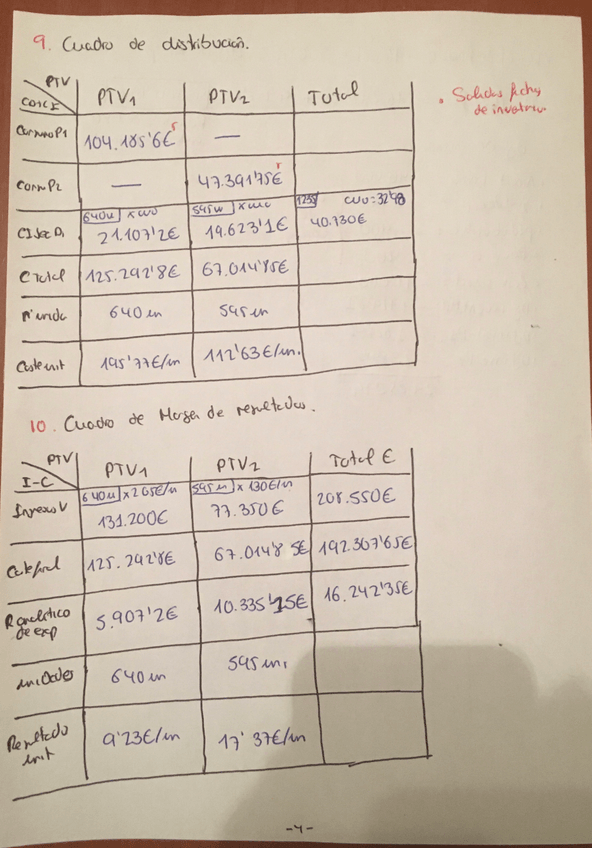 9. Cuadro de distribución.
PTV
PTV1 PTV2 Total
. Salidas ficha
de inventario
Consumo P1 104.185'6€ —
Consumo P2 — 47.391'75€
640u x cuo 595u x cuo 1235 cuo: 32'98
21.107'2€ 19.623'1€ 40.730€
C total 125.292'8€ 67.014'85€
640 un 595 un
Coste unit 195'77€/un 112'63€/un.
10. Cuadro de Margen de resultados.
PTV
I-C PTV1 PTV2 Total €
640u x 205€/u 595u x 130€/u
Ingreso V 131.200€ 77.350€ 208.550€
125.292'8€ 67.014'85€ 192.307'65€
R analítico
de exp 5.907'2€ 10.335'15€ 16.242'35€
unidades 640 un 595 un.
Resultado
unit 9'23€/un 17'37€/un
-4-